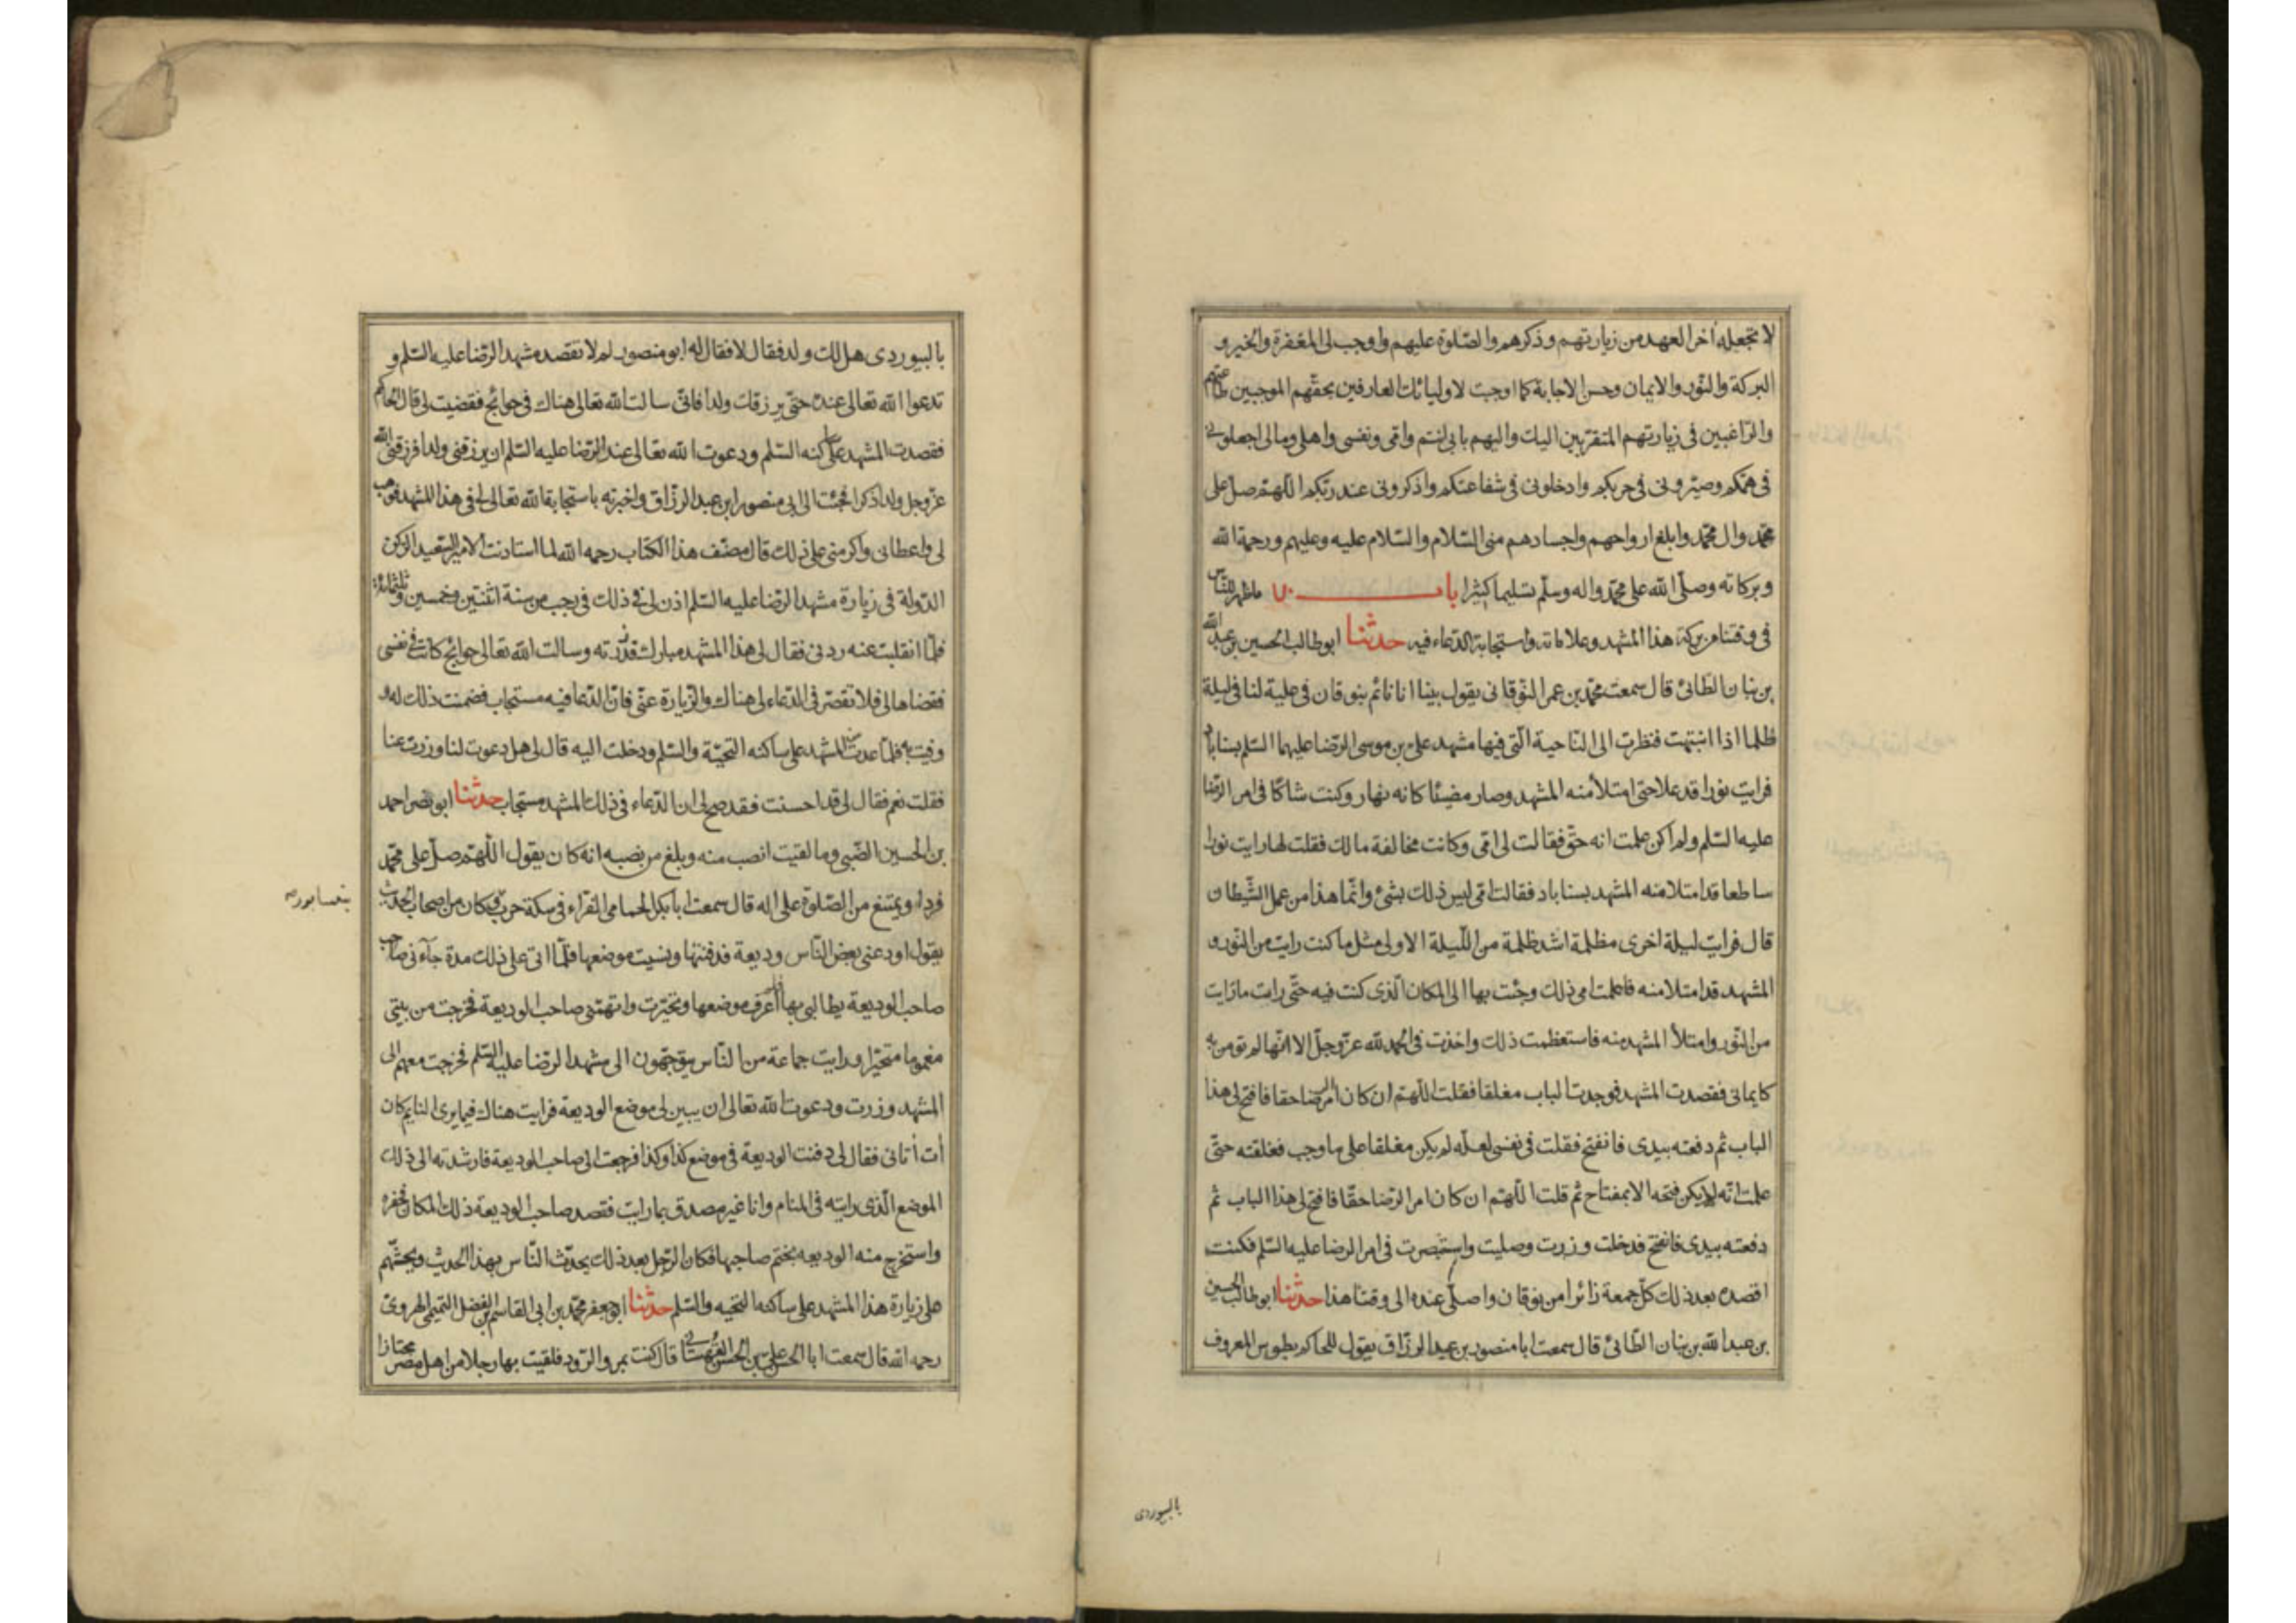 لا تجعله اخر العهد من زيارتهم وذكرهم والصّلوة عليهم واوجب لی المغفرة والخير و
البركة والنّور والايمان وحسن الاجابة كما اوجبت لاوليائك العارفين بحقّهم الموجبين طاعتهم
والرّاغبين فی زيارتهم المتقرّبين اليك واليهم بابی انتم وامّی ونفسی واهلی ومالی اجعلونی
فی همّكم وصيّرونی فی حزبكم وادخلونی فی شفاعتكم واذكرونی عند ربّكم اللّهمّ صلّ علی
محمّد وال محمّد وابلغ ارواحهم واجسادهم منی السّلام والسّلام عليه وعليهم ورحمة الله
وبركاته وصلّی الله علی محمّد واله وسلّم تسليما كثيرا باب ٧٠ ماظهر للنّاس
فی وقتنا من بركة هذا المشهد وعلاماته واستجابة الدّعاء فيه حدثنا ابو طالب الحسين بن عبد الله
بن بنان الطّائیّ قال سمعت محمّد بن عمر النّوقانی يقول بينا انا نائم بنوقان فی علية لنا فی ليلة
ظلماء اذا انتبهت فنظرت الی النّاحية الّتی فيها مشهد علیّ بن موسی الرّضا عليهما السّلم بسناباد
فرايت نورا قد علا حتی امتلأ منه المشهد وصار مضيئا كانه نهار وكنت شاكّا فی امر الرّضا
عليه السّلم ولم اكن علمت انه حقّ فقالت لی امّی وكانت مخالفة مالك فقلت لها رايت نورا
ساطعا قد امتلا منه المشهد بسناباد فقالت امّی ليس ذلك بشیء وانّما هذا من عمل الشّيطان
قال فرايت ليلة اخری مظلمة اشد ظلمة من اللّيلة الاولی مثل ما كنت رايت من النّور و
المشهد قد امتلا منه فاعلمت امی ذلك وجئت بها الی المكان الّذی كنت فيه حتّی رات ما رايت
من النّور وامتلأ المشهد منه فاستعظمت ذلك واخذت فی الحمد لله عزّ وجلّ الا انّها لم تؤمن به
كايمانی فقصدت المشهد فوجدت الباب مغلقا فقلت اللّهمّ ان كان امر الرّضا حقا فافتح لی هذا
الباب ثم دفعته بيدی فانفتح فقلت فی نفسی لعلّه لم يكن مغلقا علی ما وجب فغلقته حتّی
علمت انّه لم يكن فتحه الا بمفتاح ثم قلت اللّهمّ ان كان امر الرّضا حقّا فافتح لی هذا الباب ثم
دفعته بيدی فانفتح فدخلت وزرت وصليت واستبصرت فی امر الرضا عليه السّلم فكنت
اقصده بعد ذلك كلّ جمعة زائرا من نوقان واصلّی عنده الی وقتنا هذا حدثنا ابو طالب الحسين
بن عبد الله بن بنان الطّائیّ قال سمعت ابا منصور بن عبد الرزّاق يقول للحاكم بطوس المعروف
بالبيوردی
بالبيوردی هل لك ولد فقال لا فقال له ابو منصور لم لا تقصد مشهد الرّضا عليه السّلم و
تدعوا الله تعالی عنده حتّی يرزقك ولدا فانّی سالت الله تعالی هناك فی حوائج فقضيت لی قال الحاكم
فقصدت المشهد علی ساكنه السّلم ودعوت الله تعالی عند الرّضا عليه السّلم ان يرزقنی ولدا فرزقنی الله
عزّ وجل ولدا ذكرا فجئت الی ابی منصور ابن عبد الرزّاق واخبرته باستجابة الله تعالی لی فی هذا المشهد فوهب
لی واعطانی واكرمنی علی ذلك قال مصنّف هذا الكتاب رحمه الله لما استاذنت الامير السّعيد الركن
الدّولة فی زيارة مشهد الرّضا عليه السّلم اذن لی فی ذلك فی رجب من سنة اثنتين وخمسين وثلثمائة
فلمّا انقلبت عنه ردنی فقال لی هذا المشهد مبارك قد زرته وسالت الله تعالی حوائج كانت فی نفسی
فقضاها لی فلا تقصّر فی الدّعاء لی هناك والزّيارة عنّی فانّ الدّعا فيه مستجاب فضمنت ذلك له و
وفيت به فلمّا عدت من المشهد علی ساكنه التّحيّة والسّلم ودخلت اليه قال لی هل دعوت لنا وزرت عنا
فقلت نعم فقال لی قد احسنت فقد صح لی ان الدّعاء فی ذلك المشهد مستجاب حدثنا ابو نصر احمد
بن الحسين الضّبی وما لقيت انصب منه وبلغ من نصبه انه كان يقول اللّهمّ صلّ علی محمّد
فردا ويمتنع من الصّلوة علی اله قال سمعت ابا بكر الحمامی الفرّاء فی سكة حرب وكان من اصحاب الحديث
بنيسابور صح
يقول اودعنی بعض النّاس وديعة فدفنتها ونسيت موضعها فلمّا اتی علی ذلك مدة جآءنی صاحب
صاحب الوديعة يطالبنی بها فلم اعرف موضعها وتحيّرت واتهمّنی صاحب الوديعة فخرجت من بيتی
مغموما متحيّرا ورايت جماعة من النّاس يتوجّهون الی مشهد الرّضا عليه السّلم فخرجت معهم الی
المشهد وزرت ودعوت الله تعالی ان يبين لی موضع الوديعة فرايت هناك فيما يری النايم كان
أت أتانی فقال لی دفنت الوديعة فی موضع كذا وكذا فرجعت الی صاحب الوديعة فارشدته الی ذلك
الموضع الّذی رايته فی المنام وانا غير مصدق بما رايت فقصد صاحب الوديعة ذلك المكان فحفره
واستخرج منه الوديعه بختم صاحبها فكان الرّجل بعد ذلك يحدّث النّاس بهذا الحديث ويحثّهم
علی زيارة هذا المشهد علی ساكنه التّحيه والسّلم حدثنا ابو جعفر محمّد بن ابی القاسم بن الفضل التّميمی الهرویّ
رحمه الله قال سمعت ابا الحسن علیّ بن الحسن القهستانی قال كنت بمرو الرّود فلقيت بها رجلا من اهل مصر مجتازا